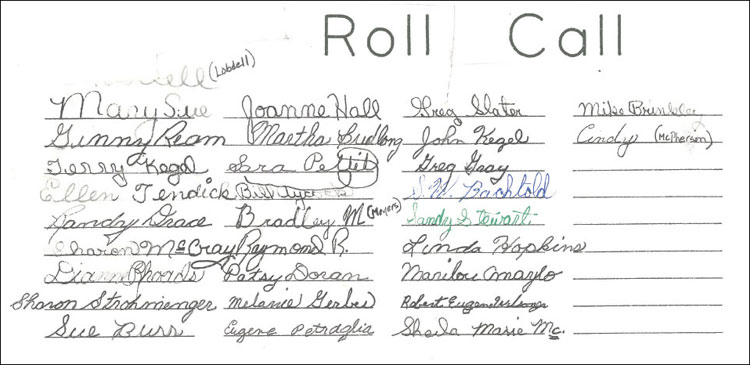 Roll Call
(Lobdell)
Mary Sue Joanne Hall Greg Slater Mike
Ginny Ream Martha Budlong John Kegel Cindy (McPherson)
Terry Kegel Sara Pettit Greg Gray
Ellen Tendick Bill D. W. Bachtold
Randy Grace Bradley M (Meyers) Sandy Stewart
Sharon McCray Raymond R.
Dianne Rhoads Patsy Doran Linda Hopkins
Marilou
Sharon Strohmenger Melanie Gerber Robert Eugene
Sue Burr Eugene Petraglia Sheila Marie Mc.